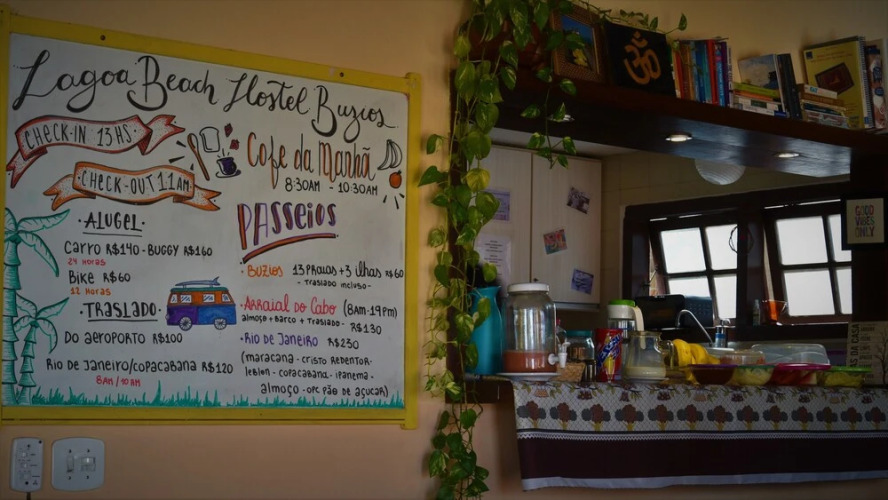 Lagoa Beach Hostel Buzios
CHECK-IN 13HS
CHECK-OUT 11AM
Cofe da Manhã
8:30AM - 10:30AM
- ALUGEL -
CARRO R$140 - BUGGY R$160
24 HORAS
BIKE R$60
12 HORAS
- TRASLADO -
DO AEROPORTO R$100
RIO DE JANEIRO/COPACABANA R$120
8AM / 10AM
PASSEIOS
BUZIOS 13 PRAIAS + 3 ILHAS R$60
- TRASLADO INCLUSO -
ARRAIAL DO CABO (8AM-19PM)
ALMOÇO + BARCO + TRASLADO - R$130
RIO DE JANEIRO R$230
(MARACANA - CRISTO REDENTOR -
LEBLON - COPACABANA - IPANEMA -
ALMOÇO - OPC PÃO DE AÇUCAR)
GOOD
VIBES
ONLY